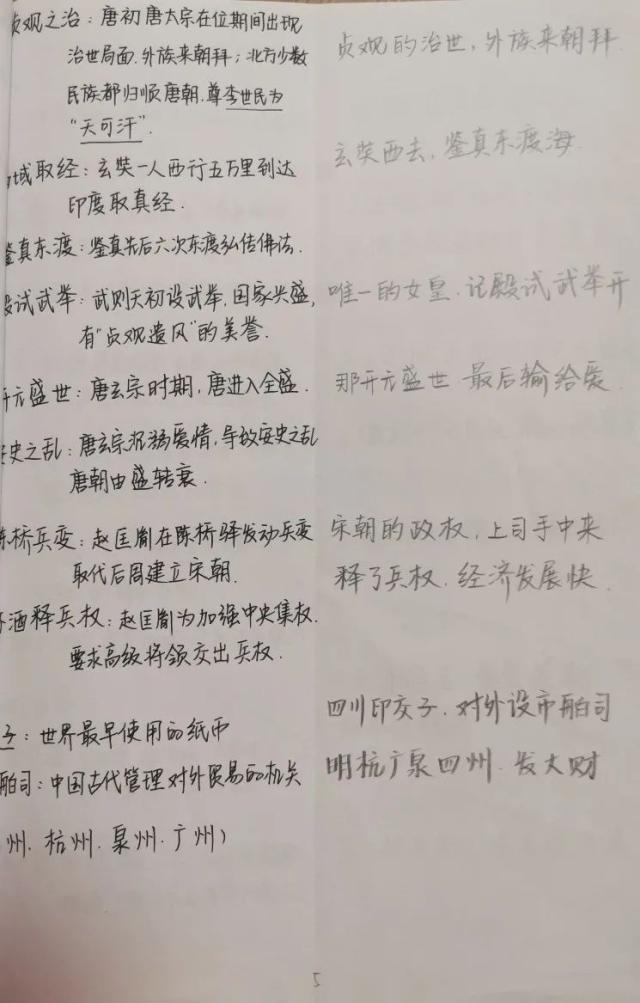 贞观之治：唐初唐太宗在位期间出现
治世局面.外族来朝拜；北方少数
民族都归顺唐朝.尊李世民为
“天可汗”.
域取经：玄奘一人西行五万里到达
印度取真经.
鉴真东渡：鉴真先后六次东渡弘传佛法.
殿试武举：武则天初设武举,国家兴盛,
有“贞观遗风”的美誉.
开元盛世：唐玄宗时期,唐进入全盛.
安史之乱：唐玄宗沉溺爱情,导致安史之乱
唐朝由盛转衰.
陈桥兵变：赵匡胤在陈桥驿发动兵变
取代后周建立宋朝.
酒释兵权：赵匡胤为加强中央集权.
要求高级将领交出兵权.
子：世界最早使用的纸币
舶司：中国古代管理对外贸易的机关
州.杭州.泉州.广州）
贞观的治世,外族来朝拜.
玄奘西去,鉴真东渡海.
唯一的女皇.记殿试武举开
那开元盛世 最后输给爱.
宋朝的政权,上司手中来
释了兵权.经济发展快.
四川印交子.对外设市舶司
明杭广泉四州.发大财
5